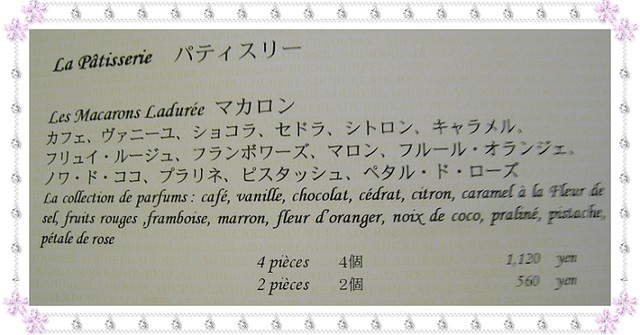 La Pâtisserie パティスリー
Les Macarons Ladurée マカロン
カフェ、ヴァニーユ、ショコラ、セドラ、シトロン、キャラメル。
フリュイ・ルージュ、フランボワーズ、マロン、フルール・オランジェ。
ノワ・ド・ココ、プラリネ、ピスタッシュ、ペタル・ド・ローズ
La collection de parfums : café, vanille, chocolat, cédrat, citron, caramel à la Fleur de
sel, fruits rouges ,framboise, marron, fleur d'oranger, noix de coco, praliné, pistache,
pétale de rose
4 pièces 4個 1,120 yen
2 pièces 2個 560 yen